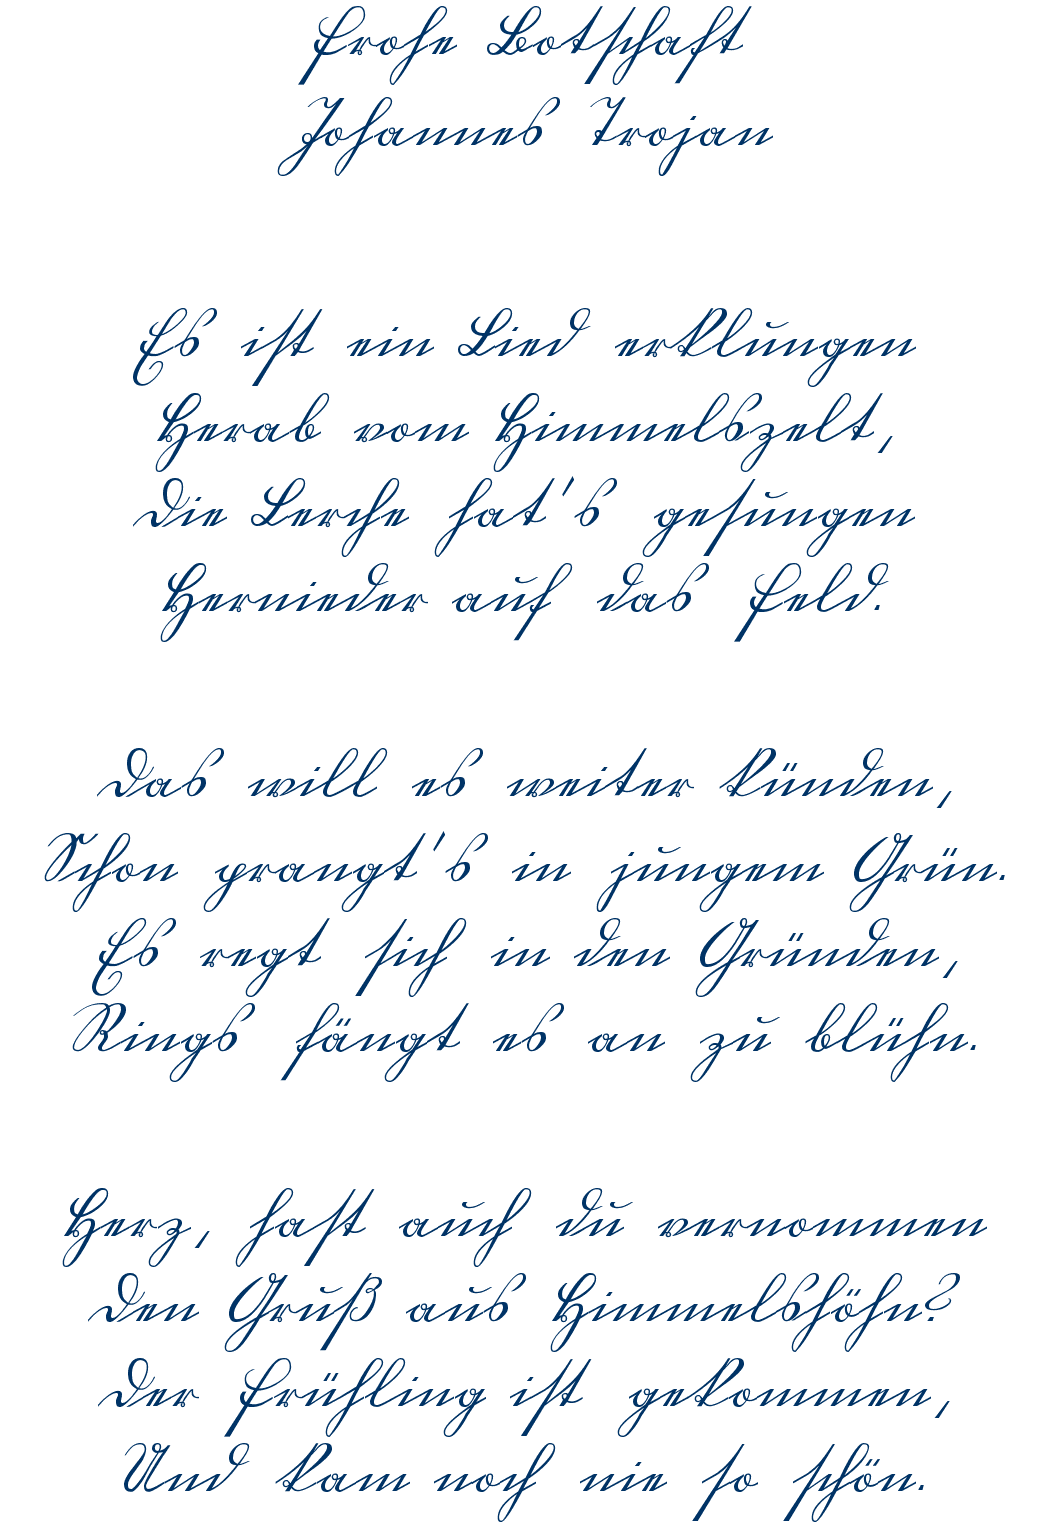 Frohe Botschaft
Johannes Trojan
Es ist ein Lied erklungen
Herab vom Himmelszelt,
Die Lerche hat's gesungen
Hernieder auf das Feld.
Das will es weiter künden,
Schon prangt's in jungem Grün.
Es regt sich in den Gründen,
Rings fängt es an zu blühn.
Herz, hast auch du vernommen
Den Gruß aus Himmelshöhn?
Der Frühling ist gekommen,
Und kam noch nie so schön.